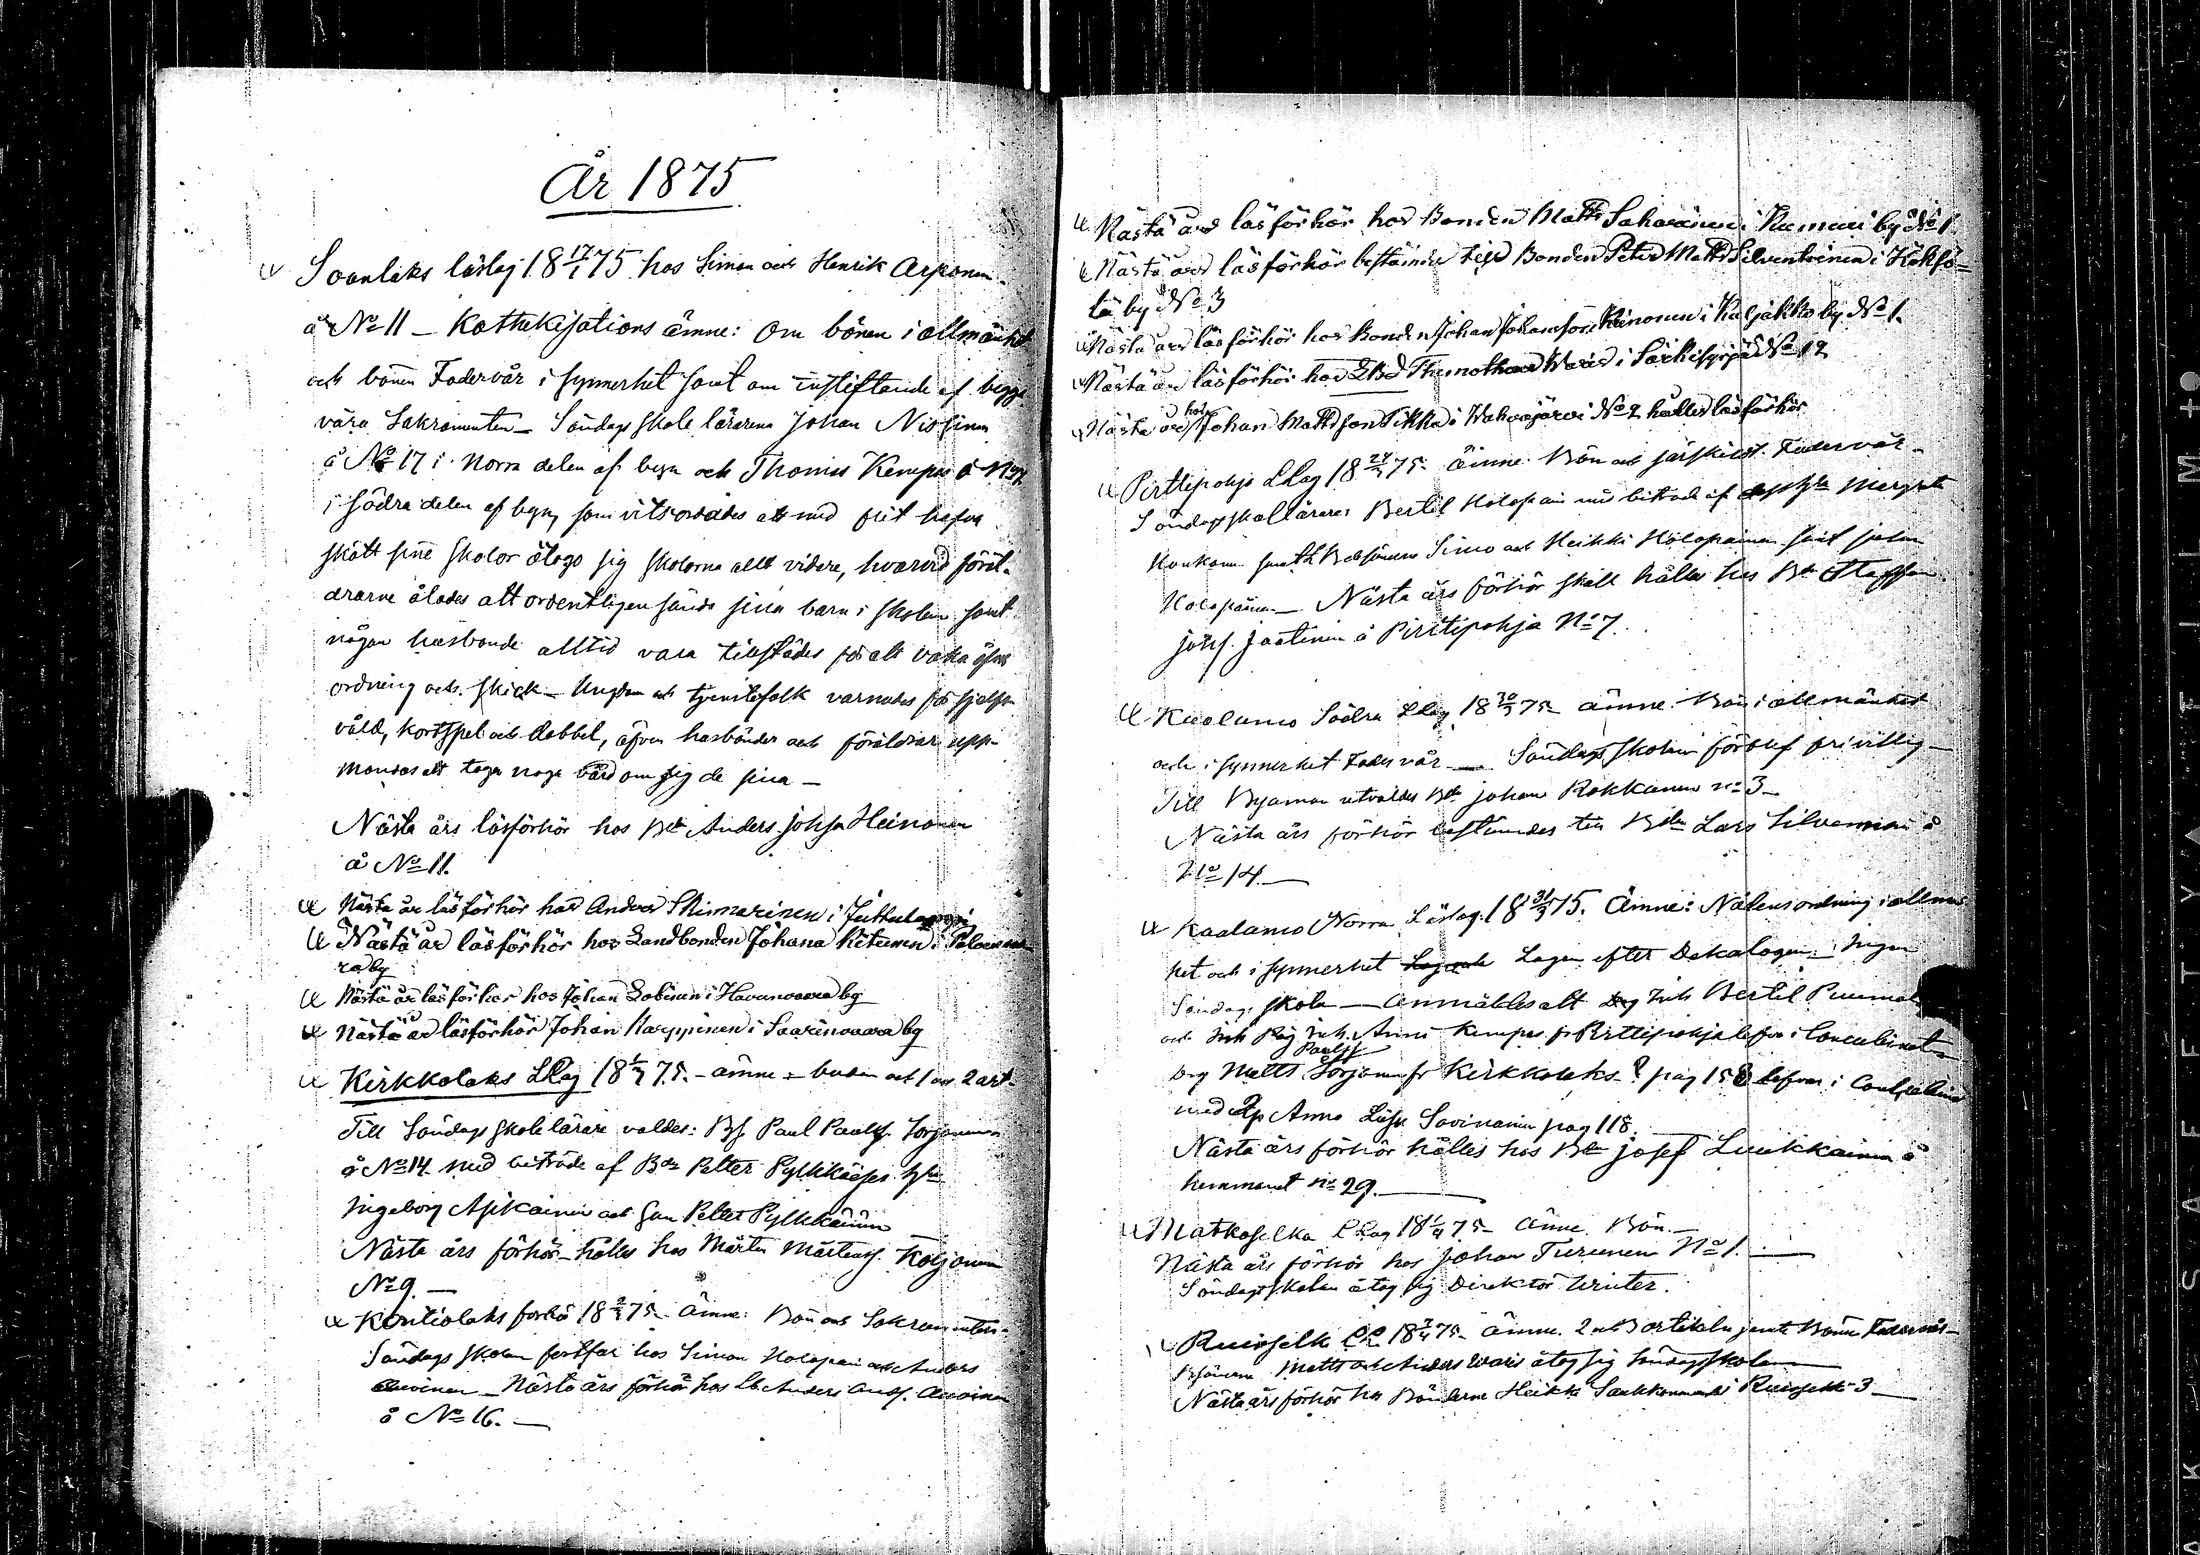 År 1875
Soanlaks läslag 18 17/1 75 hos Simon och Henrik Arponen
å No 11 – Kathekisations ämne: Om bönen i allmänhet
och bönen Fadervår i synnerhet samt om instiftande af begge
våra Sakramenten – Söndags skole lärarena Johan Nissinen
å No 17 i Norra delen af byn och Thomas Kempas å No
i södra delen af byn, som vitsordades att med flit hafva
skött sine skolor åtogo sig skolorna allt vidare, hvarvid föräl-
drarne ålades att ordentligen sända sina barn i skolan samt
någon husbonde alltid vara tillstädes för att vaka öfver
ordning och skick – Ungdom och tjenstefolk varnades för sjelfs-
våld, kortspel och dobbel, äfven husbönder och föräldrar upp-
manas att taga noga vård om sig de sina –
Nästa års läsförhör hos Bd Anders Johsn Heinonen
å No 11.
Nästa år läsförhör hos Anders Skinnarinen i
Nästa år läsförhör hos Landbonden Johana Ketunen i
ra by
Nästa år läsförhör hos Johan Lobinen i Havunvaara by
Nästa år läsförhör Johan Karppinen i Saarinvaara by
Kirkkolaks LLag 18 1/ 75. – ämne – buden och 1 och 2 art.
Till Söndags skole lärare valdes: Bs. Paul Paulss. Sorjonen
å No 14 med biträde af Bdn Petter Pylkkäs
Ingeborg Asikainen och Petter Pylkkänen
Nästa års förhör hålles hos Mårten Mårtenss. Koljonen
No 9. –
Kontiolaks förhör 18 75 – Ämne: Bön och Sakramenten –
Söndags skolan fortfar hos Simon Holopain och Anders
Auvinen – Nästa års förhör hos Lb Anders Ands. Auvinen
å No 16. –
Nästa års läsförhör hos Bonden Matts Sahavainen i by No 1.
Nästa års läsförhör bestämdes till Bonden Peter Matts Silventoinen i
tä by No 3
Nästa års läsförhör hos Bonden Johan Johansson Reinonen i Kuljakko by No 1.
Nästa års läsförhör hos LBd Thimotheus Waris i Särkisyrjä No 12
Nästa års hos Johan Mattsson Tikka i Wahvajärvi No 2 hålles läsförhör
Pirttipohja LLag 18 24/ 75. Ämne Bön och särskildt Fadervår –
Söndagsskollärare: Bertil Holopain med biträde af Margreta
Honkan samt Bdsönerne Simo och Heikki Holopainen samt
Holopainen – Nästa års förhör skall hålles hos Bd Staffan
Johs. Jaatinen å Pirttipohja No 7.
Kaalamo Södra LLag 18 30/3 75 – ämne. Bön i allmänhet
och i synnerhet Fadervår – Söndagsskolan förblef frivillig –
Till Byaman utvaldes Bd Johan Rokkanen no 3 –
Nästa års förhör bestämdes till Bdn Lars Silvennoinen å
No 14. –
Kaalamo Norra Läslag 18 31/3 75. Ämne: Nådens ordning i allmän-
het och i synnerhet Lagen efter Dekalogen – Ingen
Söndags skola – Anmäldes att Inh Bertil
och Inh Anna Kempas fr Pirttipohja lefva i Concubinat –
Matts Paulss Sorjonen fr Kirkkolaks ? pag 158 lefver i
med Anna Liisa Savinainen pag 118.
Nästa års förhör hålles hos Bd Josef Luukkainen å
hemmanet no 29. –
Matkaselka LLag 18 1/4 75 – Ämne. Bön. –
Nästa års förhör hos Johan Turunen No 1. –
Söndagsskolan åtog sig Direktör Winter.
Ruisselk LL 18 2/4 75 – ämne. 2 och 3 artikeln jemte Bönen Fadervår –
Bsönerne Matts och Anders Waris åtog sig Söndagsskolan
Nästa års förhör hos Bönderne Heikki Saukkonen i Ruisselk 3 –